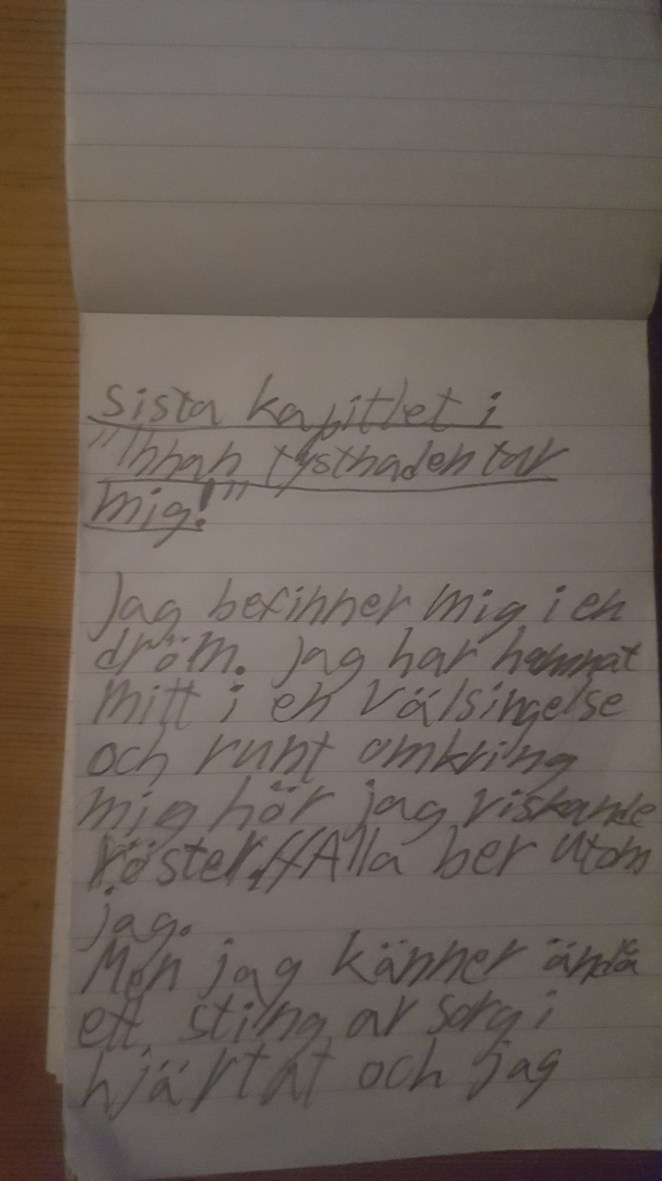 Sista kapitlet i
"Innan tystnaden tar
mig!"
Jag befinner mig i en
dröm. Jag har hamnat
mitt i en välsingelse
och runt omkring
mig hör jag viskande
röster. // Alla ber utom
jag.
Men jag känner ändå
ett sting av sorg i
hjärtat och jag